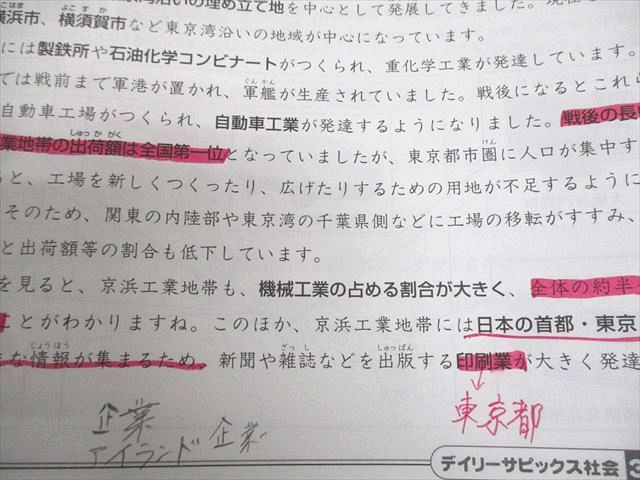 沿いの埋め立て地を中心として発展してきました。現在
横浜市、横須賀市など東京湾沿いの地域が中心になっています。
には製鉄所や石油化学コンビナートがつくられ、重化学工業が発達しています。
では戦前まで軍港が置かれ、軍艦が生産されていました。戦後になるとこれ
自動車工場がつくられ、自動車工業が発達するようになりました。戦後の長
業地帯の出荷額は全国第一位となっていましたが、東京都市圏に人口が集中す
ると、工場を新しくつくったり、広げたりするための用地が不足するように
そのため、関東の内陸部や東京湾の千葉県側などに工場の移転がすすみ、
と出荷額等の割合も低下しています。
を見ると、京浜工業地帯も、機械工業の占める割合が大きく、全体の約半
ことがわかりますね。このほか、京浜工業地帯には日本の首都・東京
な情報が集まるため、新聞や雑誌などを出版する印刷業が大きく発達
東京都
企業
アイランド企業
デイリーサピックス社会